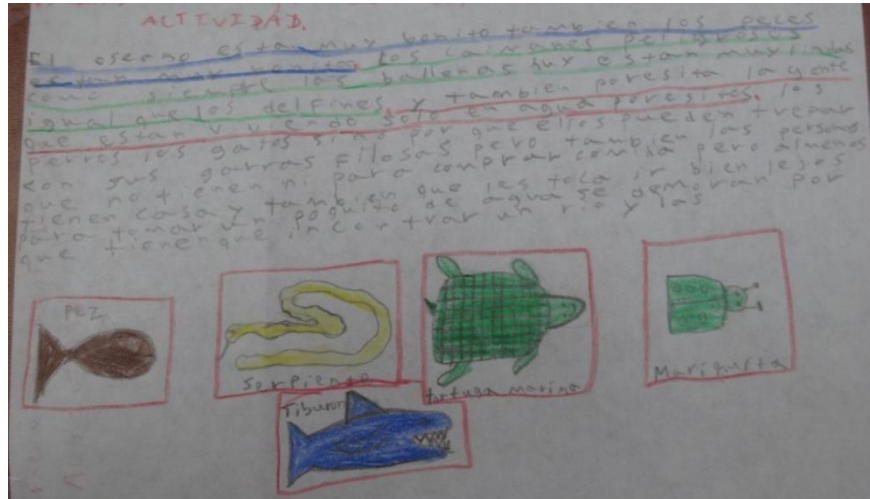 ACTIVIDAD.
El oseano es tan muy bonito tambien los peces
estan muy bonitos. Los caimanes peligrosos
como siempre las ballenas uy estan muy lindas
igual que los delfines. y tambien poresita la gente
que estan viviendo solo en agua poresitos. los
perros los gatos sino por que ellos pueden trepar
con sus garras filosas pero tambien las personas
que no tienen ni para comprar comida pero almenos
tienen casa y tambien que les toca ir bien lejos
para tomar un poquito de agua se demoran por
que tienen que incontrar un rio y las
PEZ
Serpiente
tortuga marina
Mariquita
Tiburon